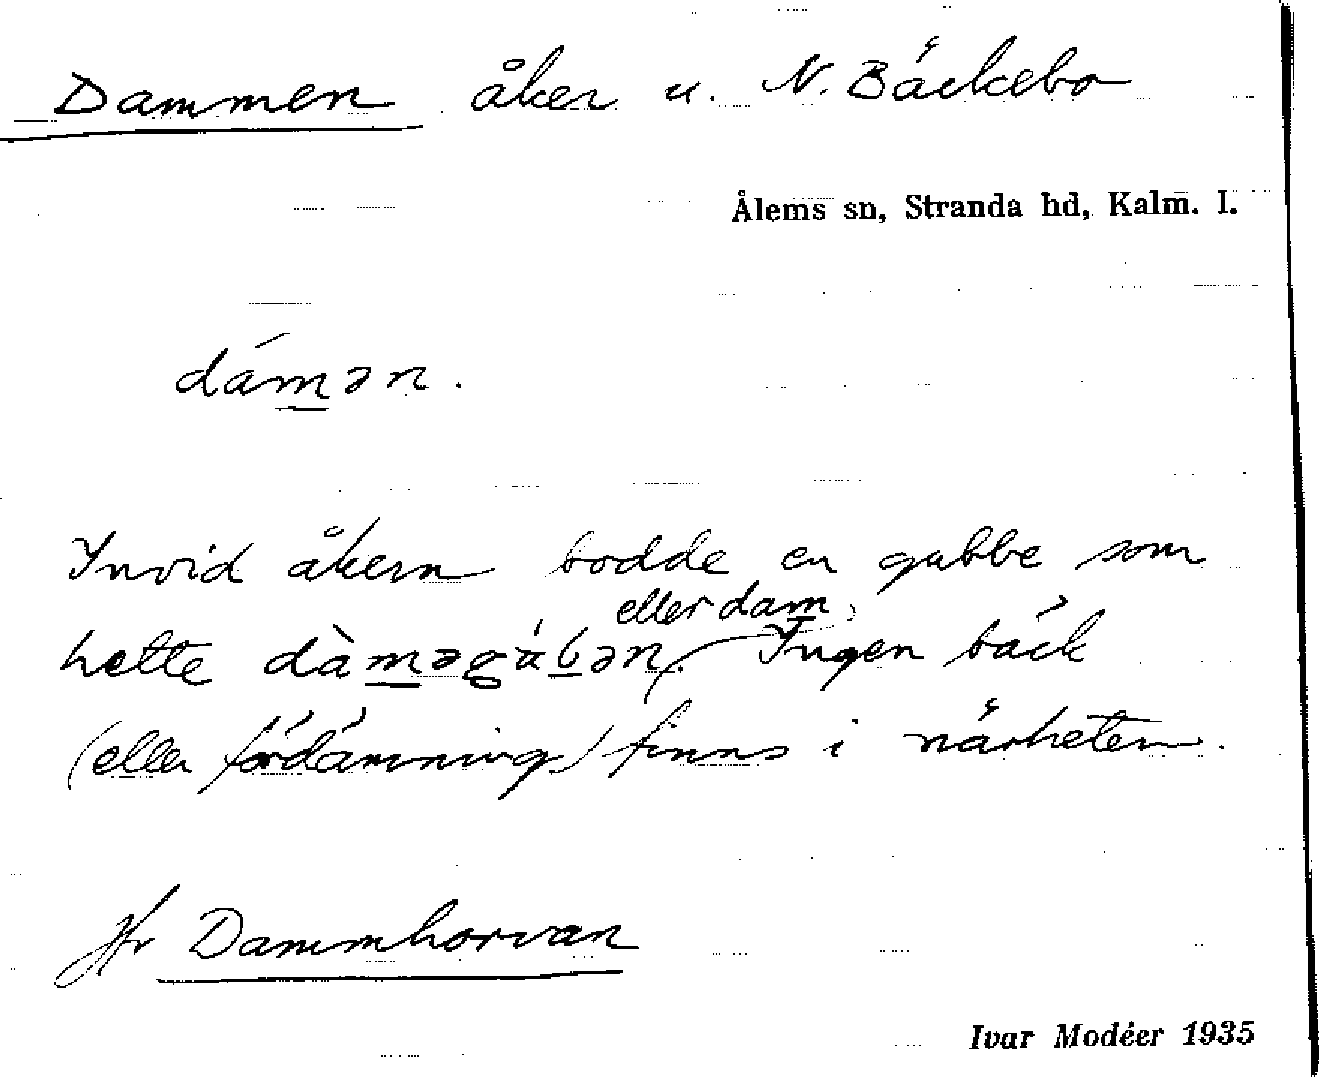 Dammen åker u. N. Bäckebo
Ålems sn, Stranda hd, Kalm. l.
dámən.
Invid åkern bodde en gubbe som
eller dam
hette dàməgúbən. Ingen bäck
(eller fördämning) finns i närheten.
Jfr Dammhorvan
Ivar Modéer 1935